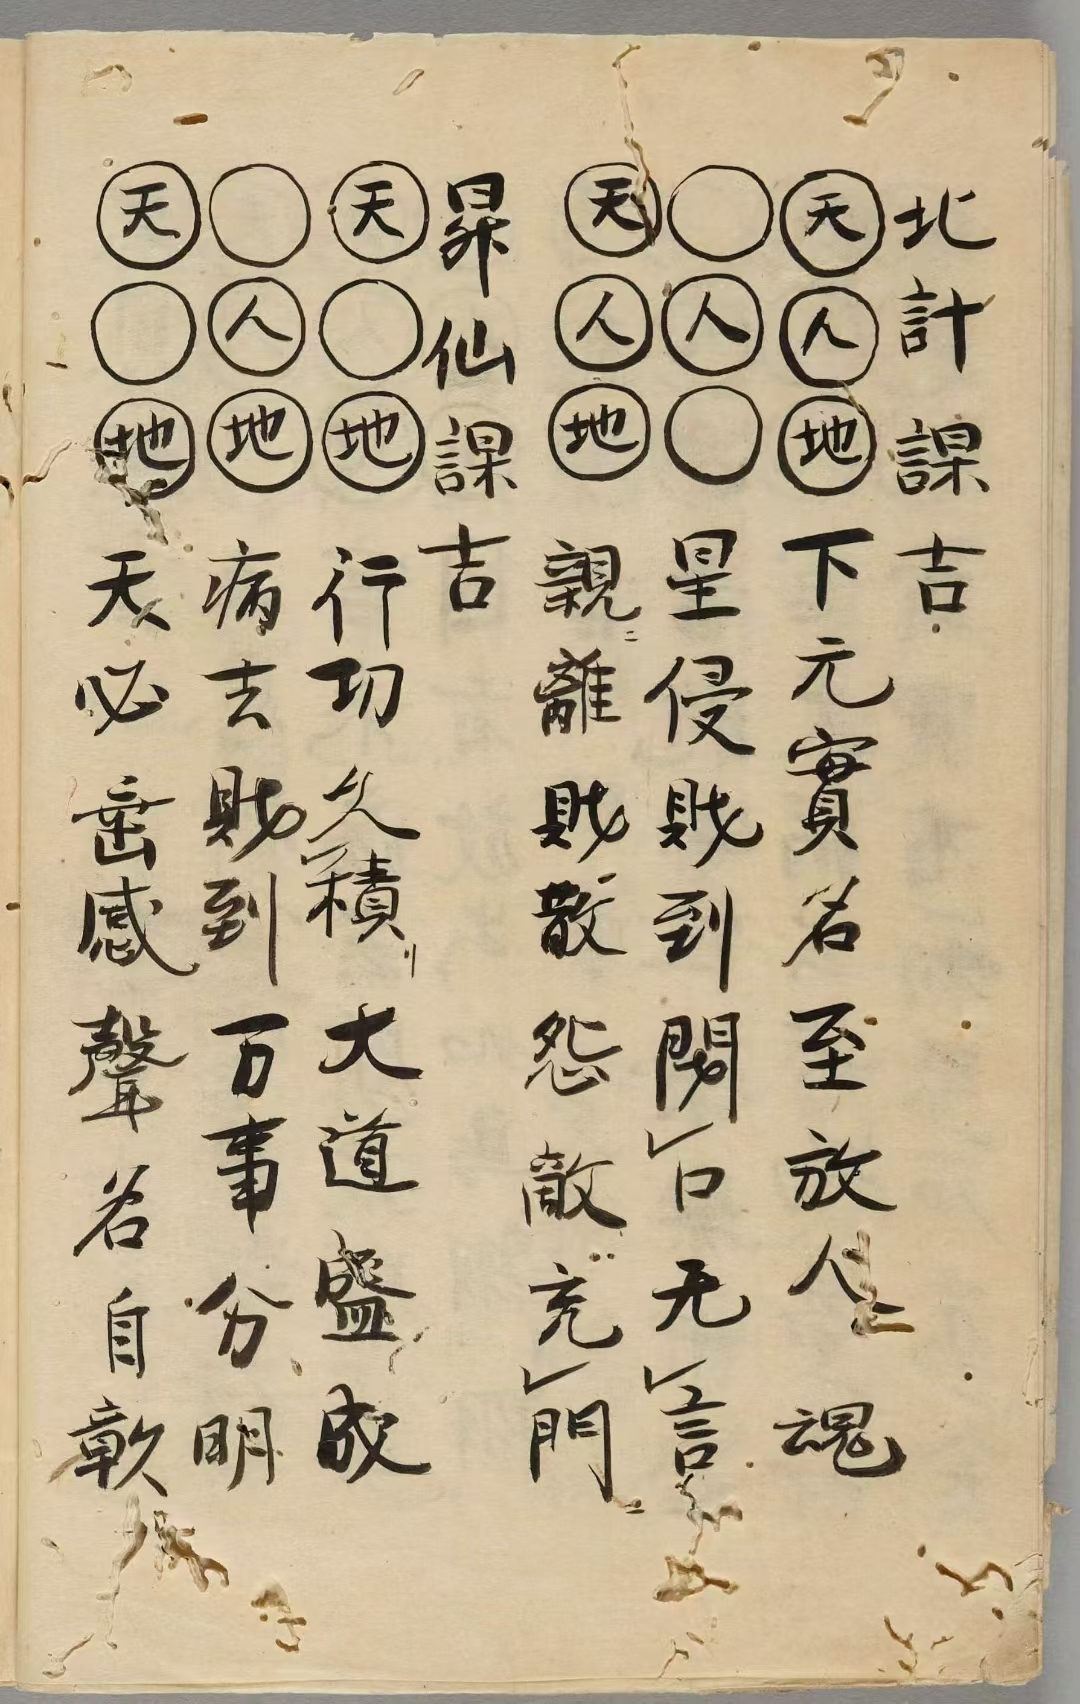 北計課吉
天人地 下元實名至放人魂
人 星侵財到閉口无言
天人地 親離財散怨敵充門
昇仙課吉
天地 行功久積大道盛成
人地 病去財到万事分明
天地 天必垂感聲名自彰